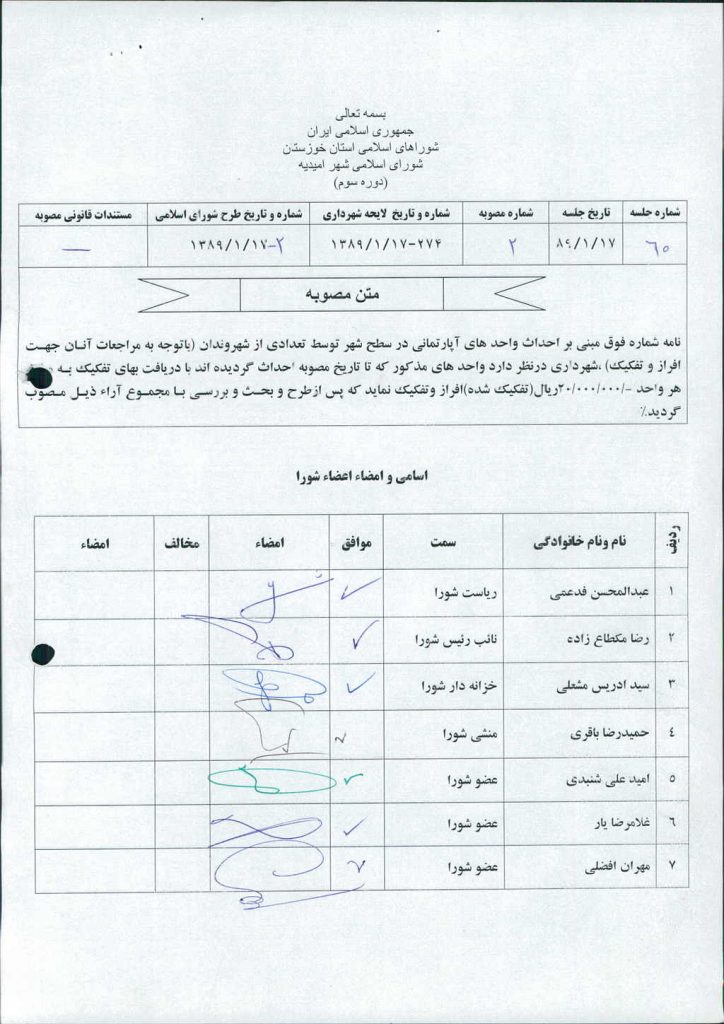 بسمه تعالی
جمهوری اسلامی ایران
شوراهای اسلامی استان خوزستان
شورای اسلامی شهر امیدیه
(دوره سوم)
شماره جلسه تاریخ جلسه شماره مصوبه شماره و تاریخ لایحه شهرداری شماره و تاریخ طرح شورای اسلامی مستندات قانونی مصوبه
۶۰ ۸۹/۱/۱۷ ۲ ۱۳۸۹/۱/۱۷-۲۷۴ ۱۳۸۹/۱/۱۷-۲ —
متن مصوبه
نامه شماره فوق مبنی بر احداث واحد های آپارتمانی در سطح شهر توسط تعدادی از شهروندان (باتوجه به مراجعات آنان جهت
افراز و تفکیک) ،شهرداری درنظر دارد واحد های مذکور که تا تاریخ مصوبه احداث گردیده اند با دریافت بهای تفکیک به
هر واحد -/۲۰/۰۰۰/۰۰۰ریال(تفکیک شده)افراز وتفکیک نماید که پس ازطرح و بحث و بررسی با مجموع آراء ذیل مصوب
گردید.٪
اسامی و امضاء اعضاء شورا
ردیف نام ونام خانوادگی سمت موافق امضاء مخالف امضاء
۱ عبدالمحسن فدعمی ریاست شورا ✓
۲ رضا مکطاع زاده نائب رئیس شورا ✓
۳ سید ادریس مشعلی خزانه دار شورا ✓
٤ حمیدرضا باقری منشی شورا ✓
۵ امید علی شنبدی عضو شورا ✓
۶ غلامرضا یار عضو شورا ✓
۷ مهران افضلی عضو شورا ✓